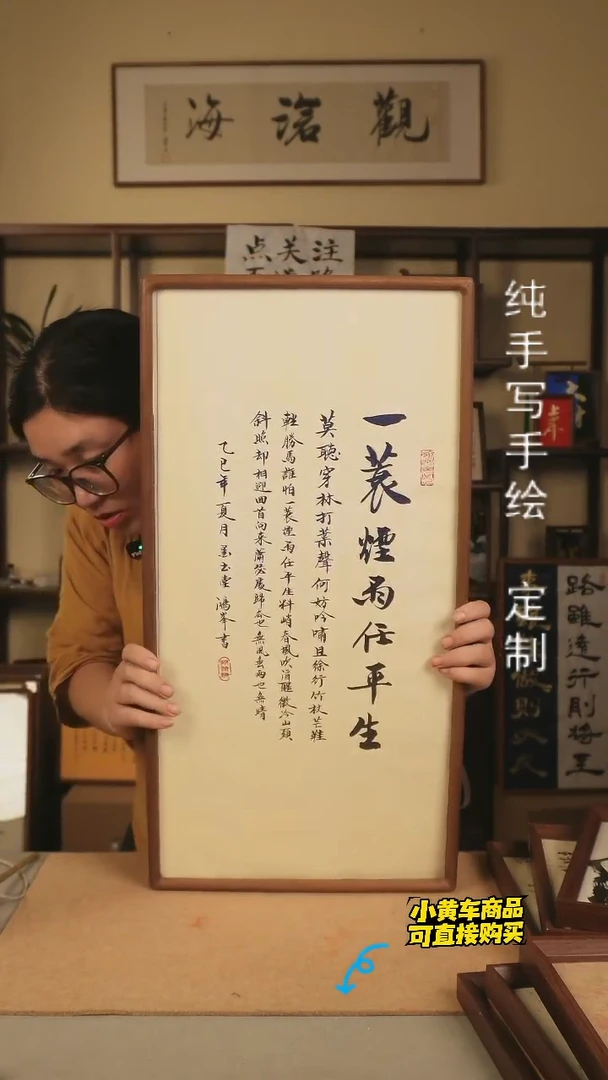 觀滄海
点关注
一蓑煙雨任平生
莫聽穿林打葉聲何妨吟嘯且徐行竹杖芒鞋
輕勝馬誰怕一蓑煙雨任平生料峭春風吹酒醒微冷山頭
斜照却相迎回首向來蕭瑟處歸去也無風雨也無晴
乙巳年夏月
鴻峯書
纯手写手绘 定制
路雖遠行則將至
做則必
小黄车商品
可直接购买